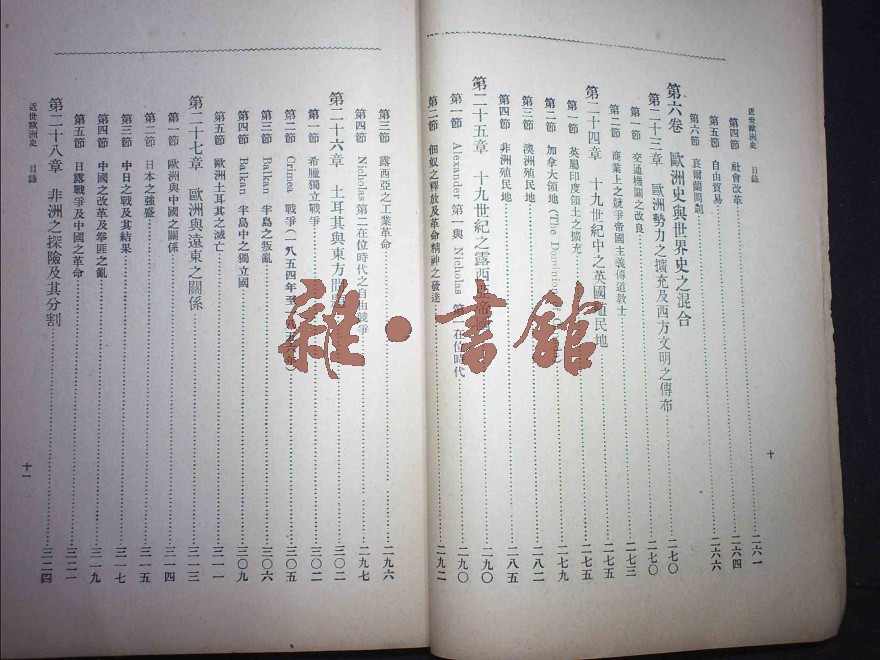 近世歐洲史 目錄 十
第四節 社會改革……二六一
第五節 自由貿易……二六四
第六節 哀爾蘭問題……二六六
第六卷 歐洲史與世界史之混合
第二十三章 歐洲勢力之擴充及西方文明之傳布……二七〇
第一節 交通機關之改良……二七〇
第二節 商業上之競爭帝國主義傳道教士……二七三
第二十四章 十九世紀中之英國殖民地……二七五
第一節 英屬印度領土之擴充……二七五
第二節 加拿大領地(The Dominion……二七九
第三節 澳洲殖民地……二八二
第四節 非洲殖民地……二八五
第二十五章 十九世紀之露西亞帝國……二九〇
第一節 Alexander 第一與 Nicholas 第一在位時代……二九〇
第二節 佃奴之釋放及革命精神之發達……二九二
第三節 露西亞之工業革命……二九六
第四節 Nicholas 第二在位時代之自由競爭……二九七
第二十六章 土耳其與東方問題……三〇二
第一節 希臘獨立戰爭……三〇二
第二節 Crimea 戰爭(一八五四年至一八五六年)……三〇五
第三節 Balkan 半島中之叛亂……三〇六
第四節 Balkan 半島中之獨立國……三〇九
第五節 歐洲土耳其之滅亡……三一一
第二十七章 歐洲與遠東之關係……三一三
第一節 歐洲與中國之關係……三一四
第二節 日本之強盛……三一五
第三節 中日之戰及其結果……三一七
第四節 中國之改革及拳匪之亂……三一九
第五節 日露戰爭及中國之革命……三二一
第二十八章 非洲之探險及其分割……三二四
近世歐洲史 目錄 十一
雜·書館